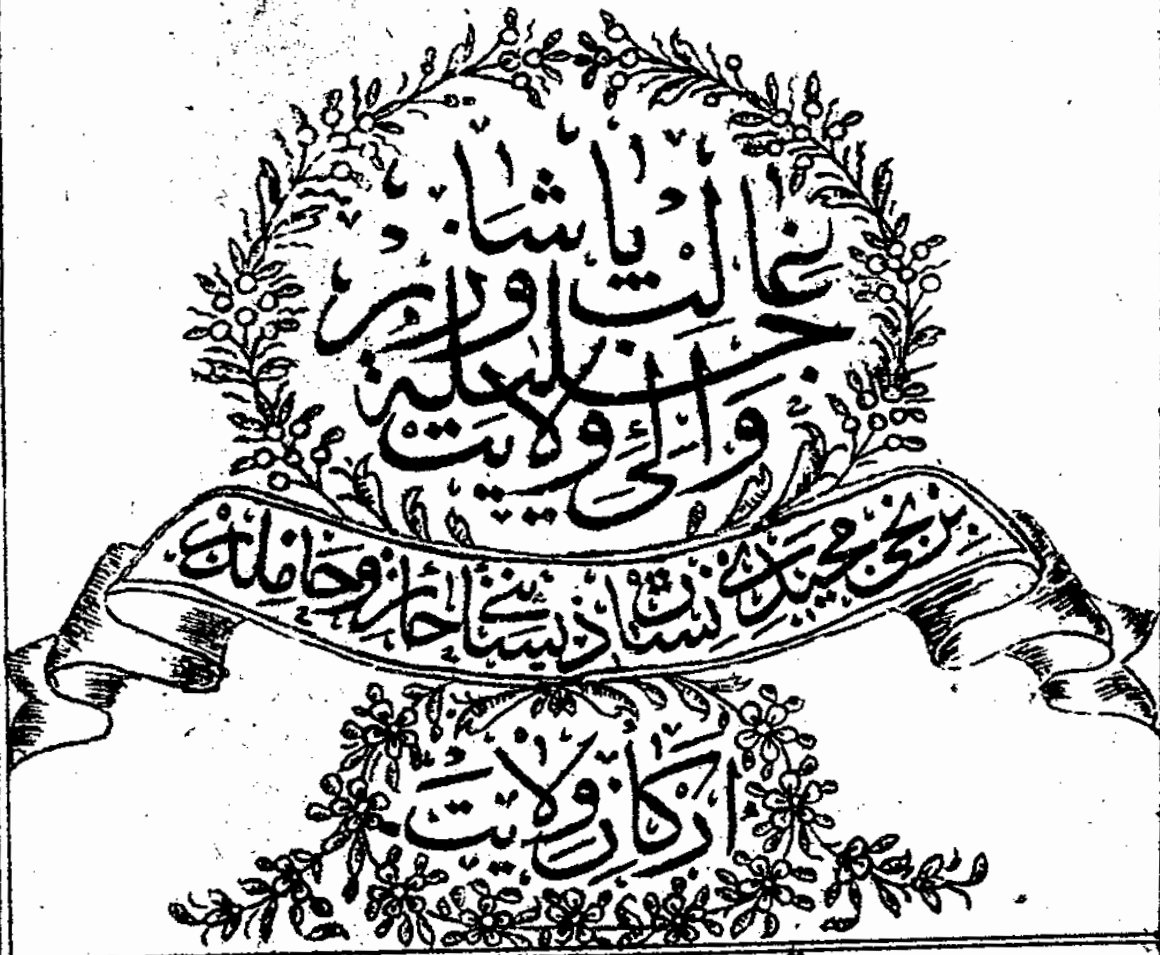 والئ ولايت
جليله وزير
غالب پاشا
برنجى مجيدى نشان ذيشاننى حائز وحاملدر
اركان ولايت